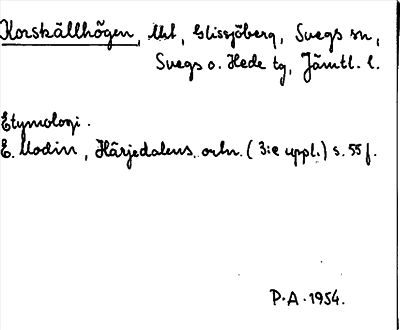 Korskällhögen, Ukt, Glissjöberg, Svegs sn,
Svegs o. Hede tg, Jämtl. l.
Etymologi.
E. Modin, Härjedalens ortn. (3:e uppl.) s. 55 f.
P.A. 1954.